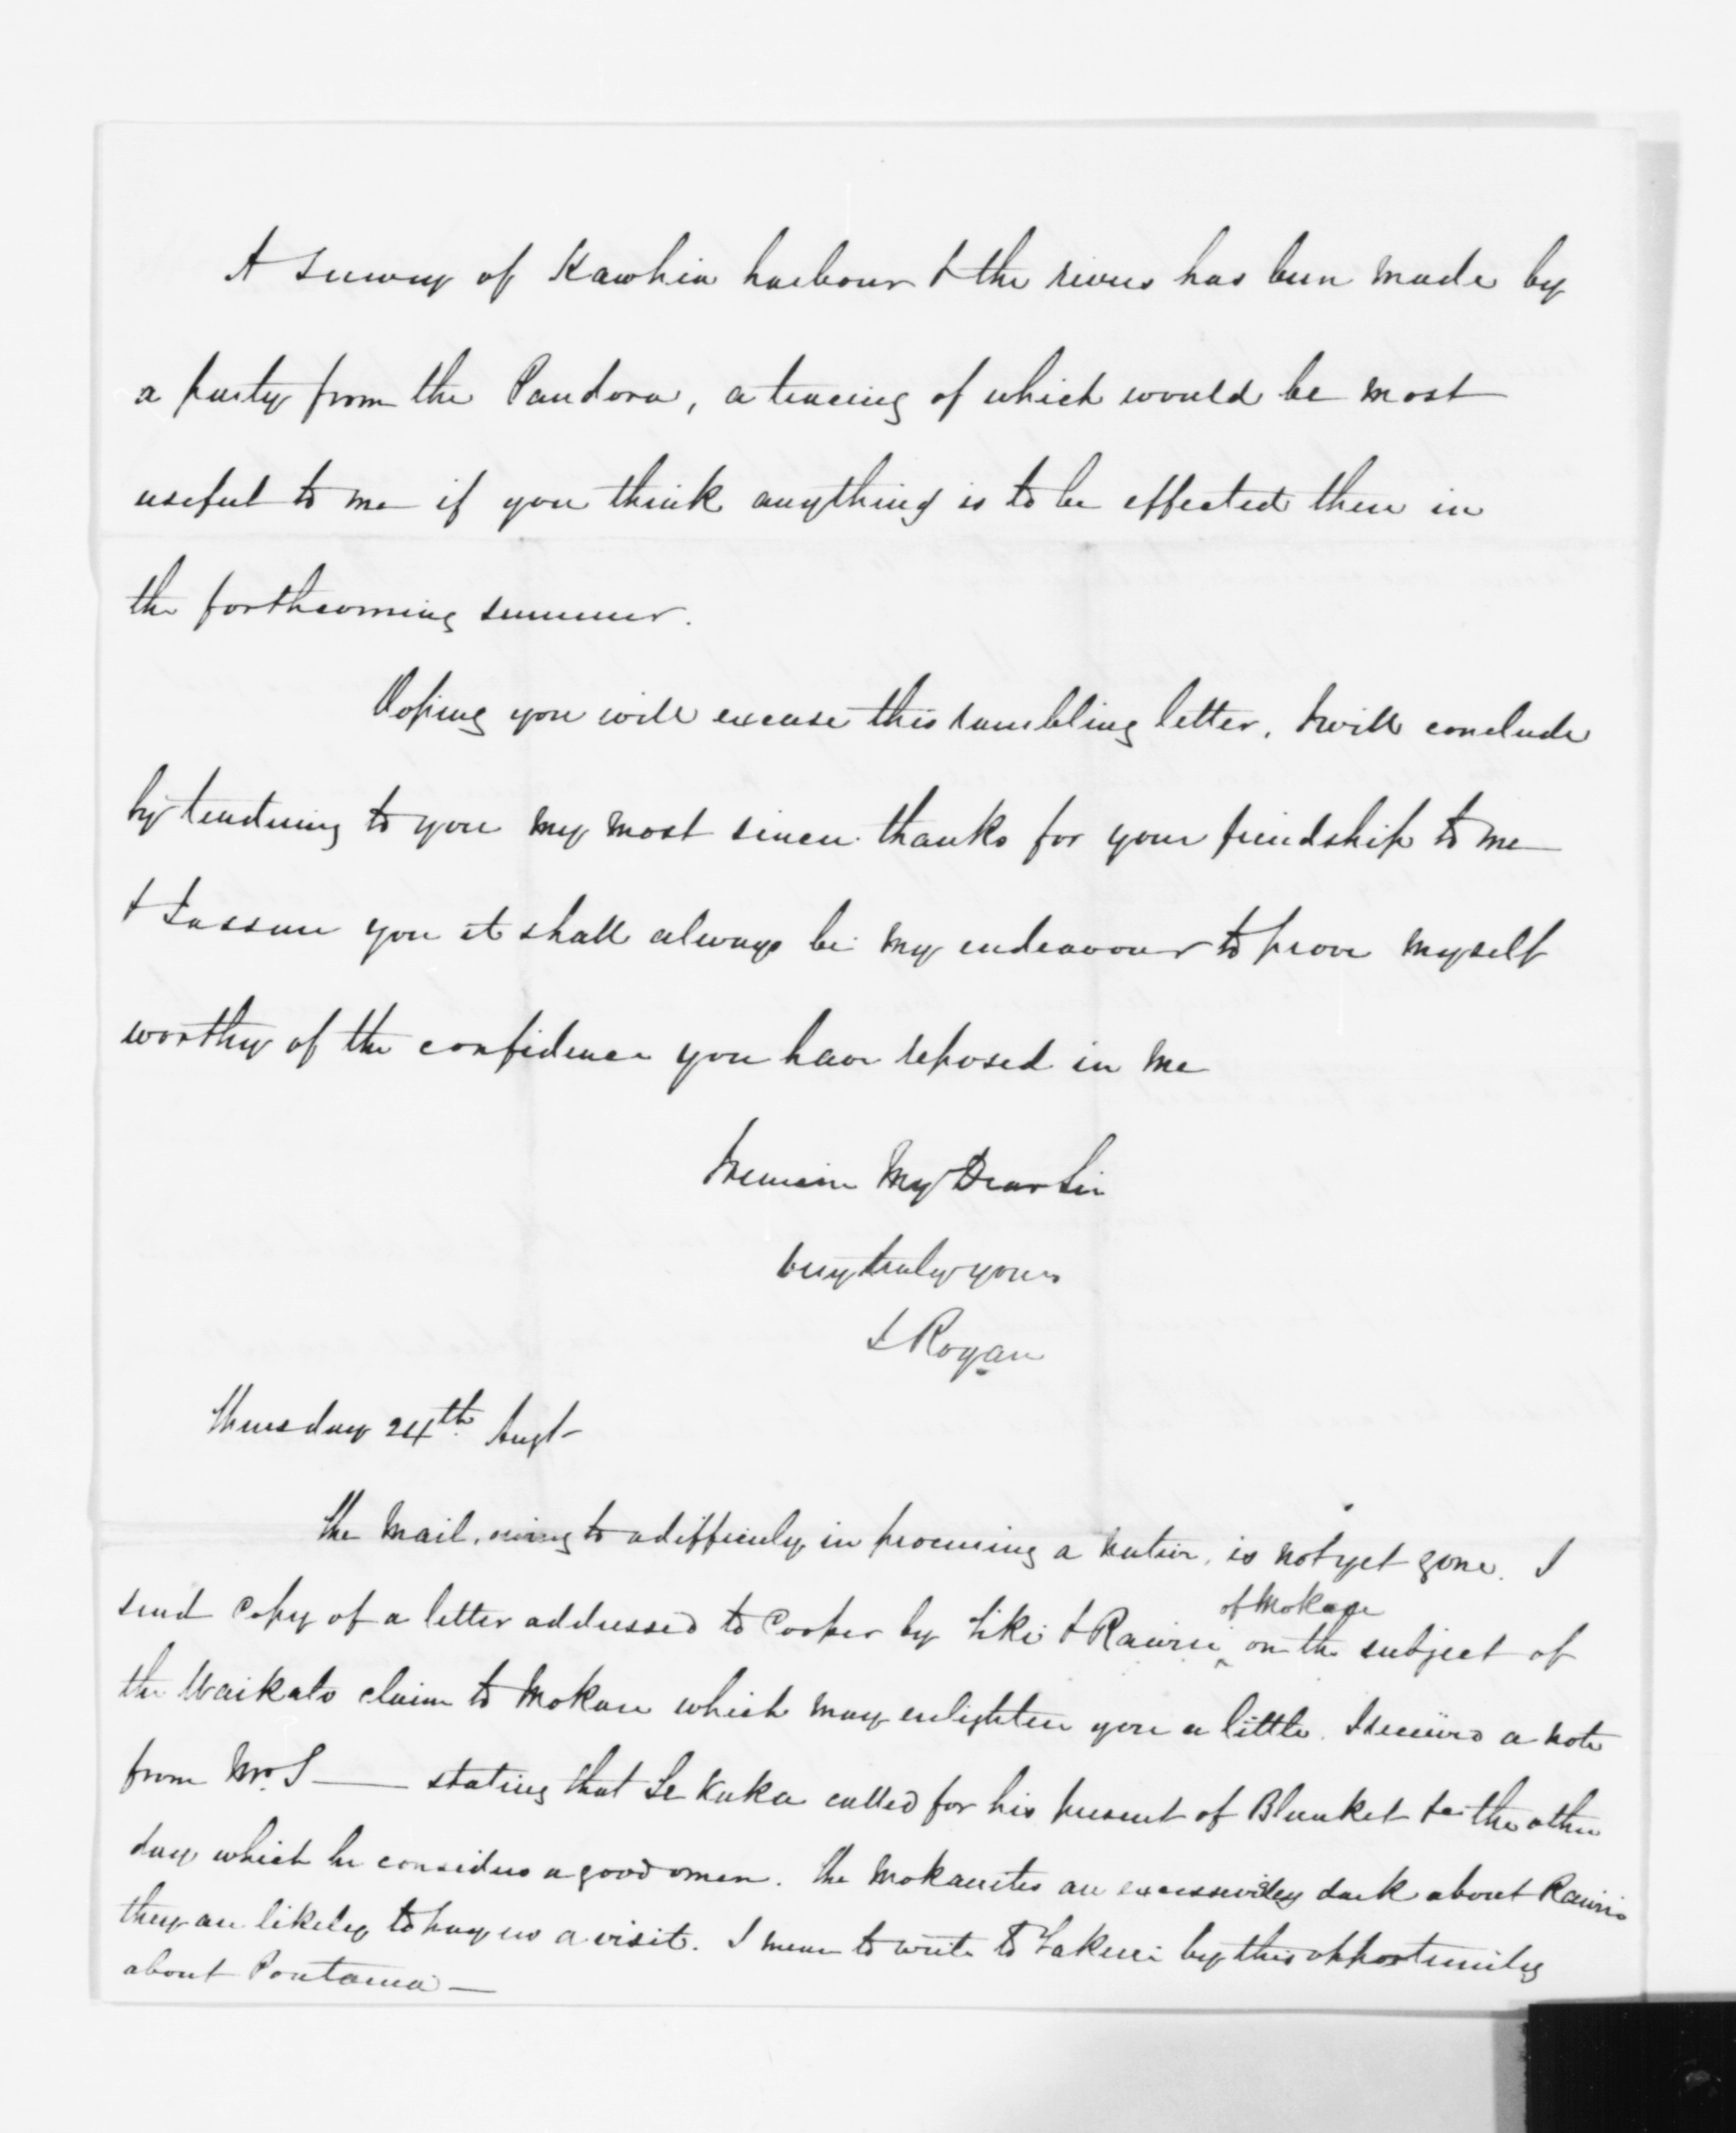 A survey of Kawhia harbour & the rivers has been made by
a party from the Pandora, a tracing of which would be most
useful to me if you think anything is to be effected there in
the forthcoming summer.
Hoping you will excuse this rambling letter, I will conclude
by tendering to you my most sincere thanks for your friendship to me
& I assure you it shall always be my endeavour to prove myself
worthy of the confidence you have reposed in me
I remain My Dear Sir
very truly yours
J Rogan
Thursday 24th Augt
The Mail, owing to a difficuly in procuring a native, is not yet gone. I
send copy of a letter addressed to Cooper by Tiki & Rawiri of Mokau on the subject of
the Waikato claim to Mokau which may enlighten you a little. I received a note
from Mr. S—— stating that Te Kaka called for his present of Blanket &c the other
day which he considers a good omen. The Mokauites are excessively dark about Rawiri
they are likely to pay us a visit. I mean to write to Takerei by this opportunity
about Poutama —